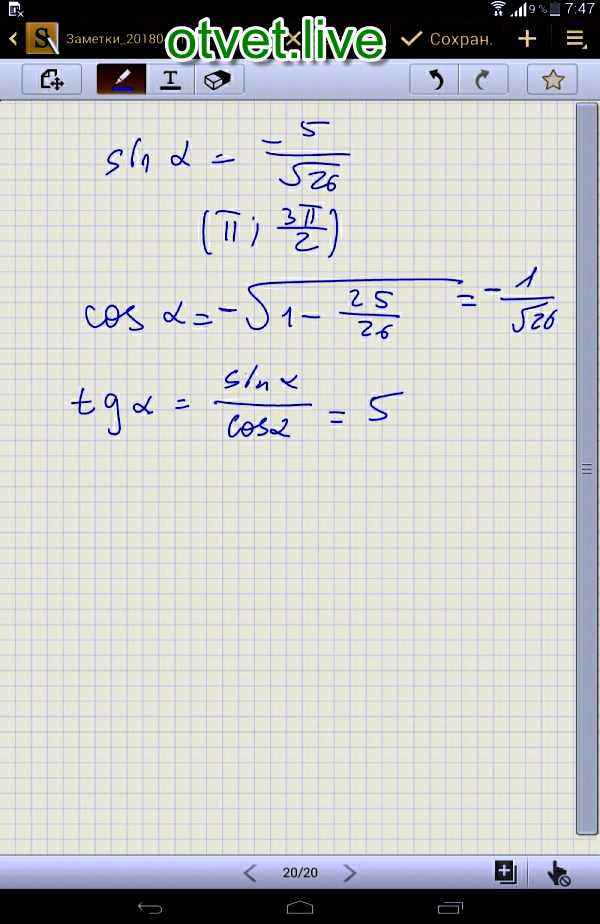 9% 7:47
S Заметки_20180 otvet.live Сохран.
T
sin α = -5/√26
(π; 3π/2)
cos α = -√(1 - 25/26) = -1/√26
tg α = sin α/cos α = 5
20/20